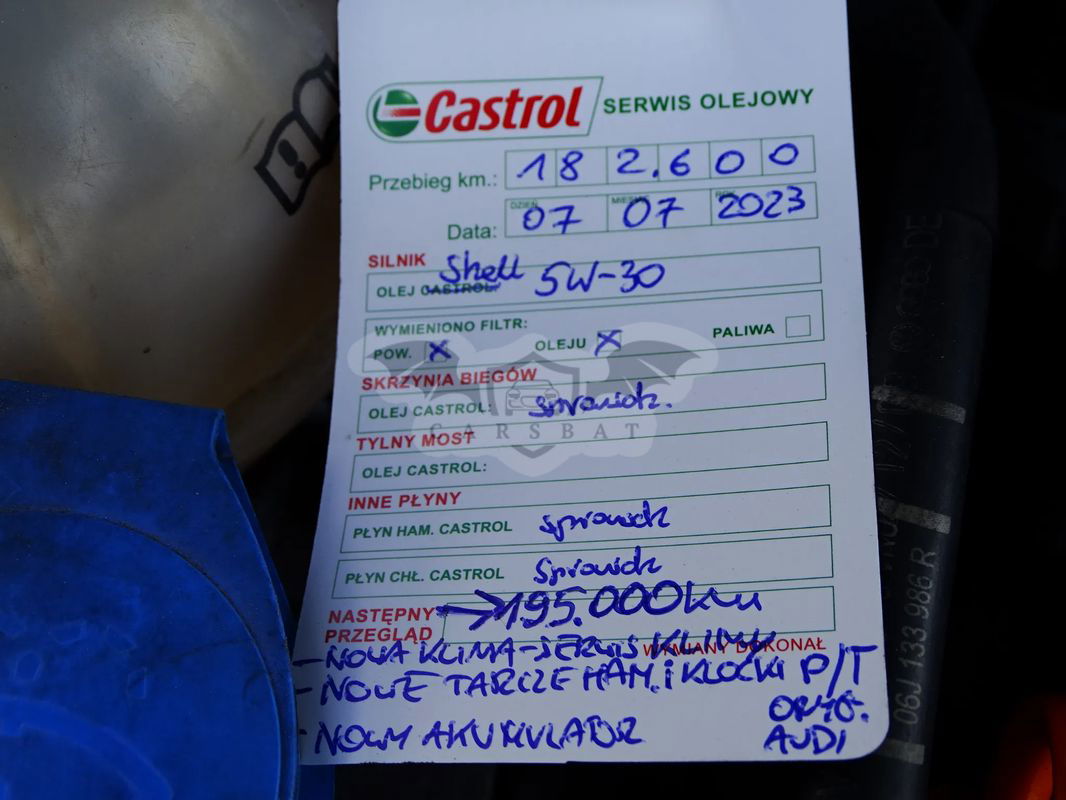 Castrol SERWIS OLEJOWY
Przebieg km.: 18 2.600
DZIEŃ MIESIĄC ROK
Data: 07 07 2023
SILNIK
OLEJ CASTROL: Shell 5W-30
WYMIENIONO FILTR:
POW. X OLEJU X PALIWA
SKRZYNIA BIEGÓW
OLEJ CASTROL: sprawdz.
CARSBAT
TYLNY MOST
OLEJ CASTROL:
INNE PŁYNY
PŁYN HAM. CASTROL sprawdz
PŁYN CHŁ. CASTROL sprawdz
NASTĘPNY PRZEGLĄD → 195.000 km
WYMIANY DOKONAŁ
- NOWA KLIMA - SERWIS KLIMY
- NOWE TARCZE HAM. i KLOCKI P/T
ORYG. AUDI
- NOWY AKUMULATOR
06J 133 986 R